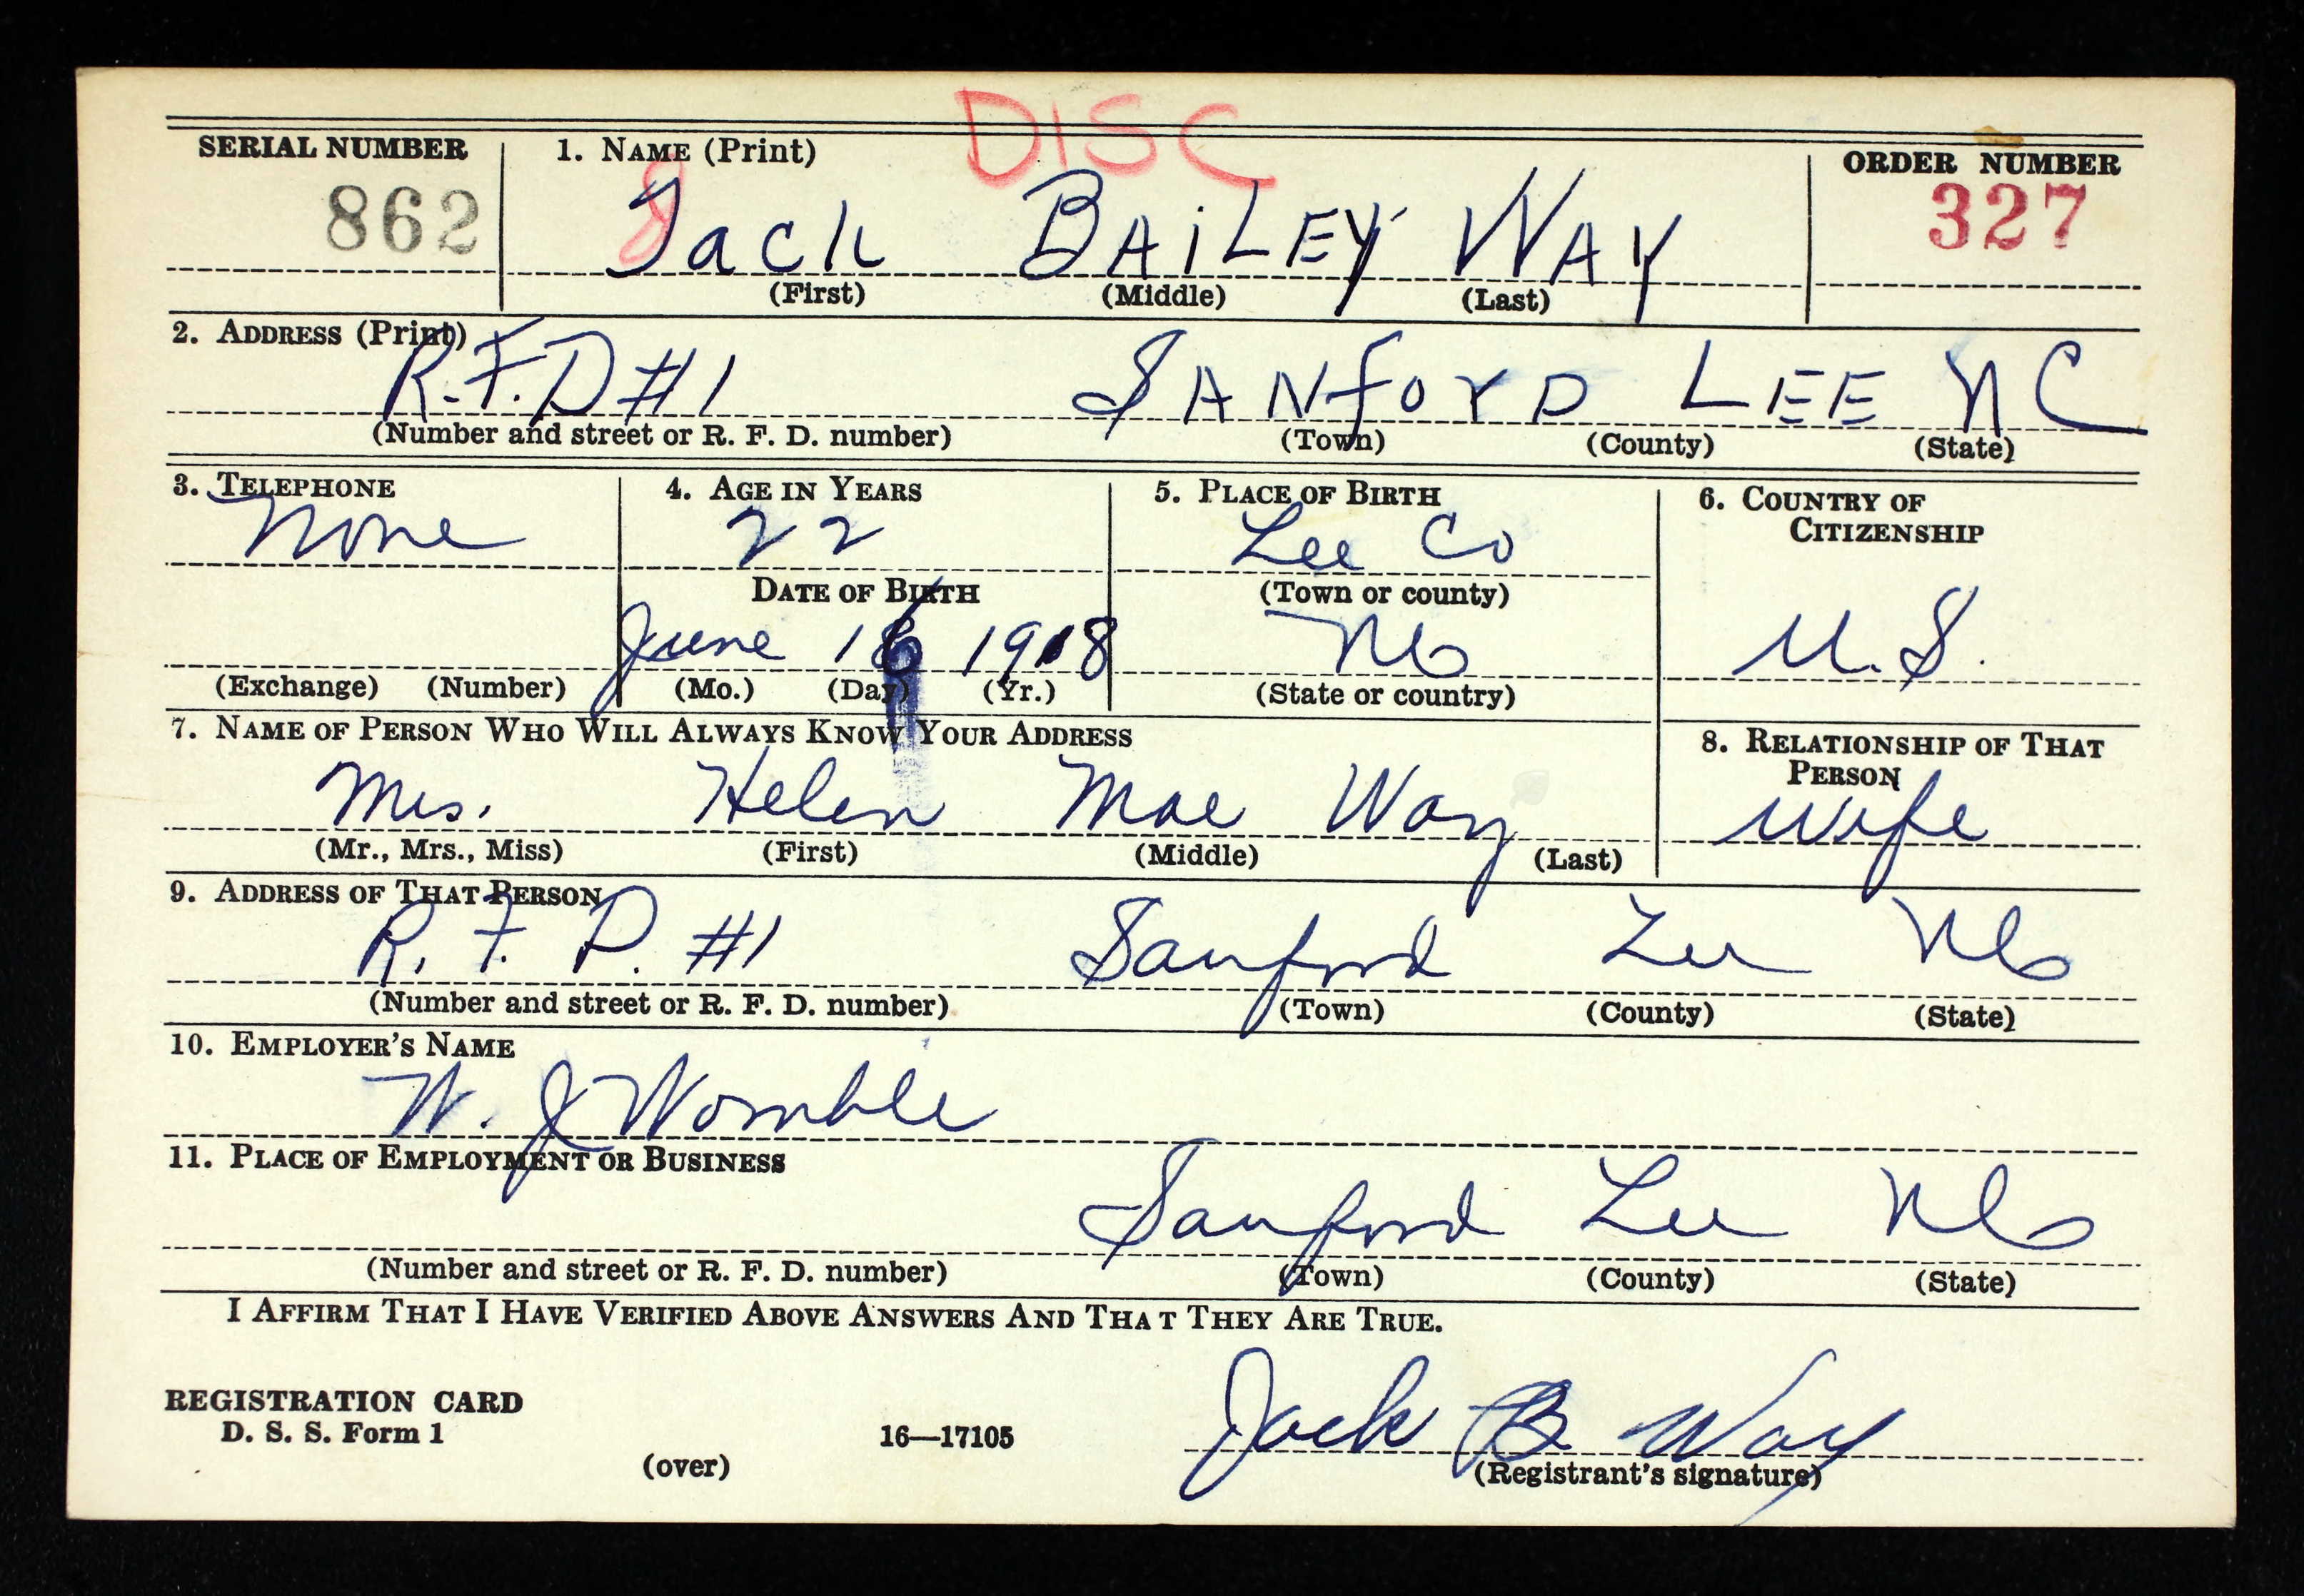 DISC
SERIAL NUMBER 1. NAME (Print) ORDER NUMBER
862 Jack BAiLEY WAY 327
(First) (Middle) (Last)
2. ADDRESS (Print)
R.F.D #1 SANfoRD LEE NC
(Number and street or R. F. D. number) (Town) (County) (State)
3. TELEPHONE 4. AGE IN YEARS 5. PLACE OF BIRTH 6. COUNTRY OF CITIZENSHIP
None 22 Lee Co
DATE OF BIRTH (Town or county)
June 16 1918 NC U.S.
(Exchange) (Number) (Mo.) (Day) (Yr.) (State or country)
7. NAME OF PERSON WHO WILL ALWAYS KNOW YOUR ADDRESS 8. RELATIONSHIP OF THAT PERSON
Mrs. Helen Mae Way Wife
(Mr., Mrs., Miss) (First) (Middle) (Last)
9. ADDRESS OF THAT PERSON
R. F. D. #1 Sanford Lee NC
(Number and street or R. F. D. number) (Town) (County) (State)
10. EMPLOYER'S NAME
W. J Womble
11. PLACE OF EMPLOYMENT OR BUSINESS
Sanford Lee NC
(Number and street or R. F. D. number) (Town) (County) (State)
I AFFIRM THAT I HAVE VERIFIED ABOVE ANSWERS AND THAT THEY ARE TRUE.
REGISTRATION CARD
D. S. S. Form 1 16—17105 Jack B Way
(over) (Registrant's signature)